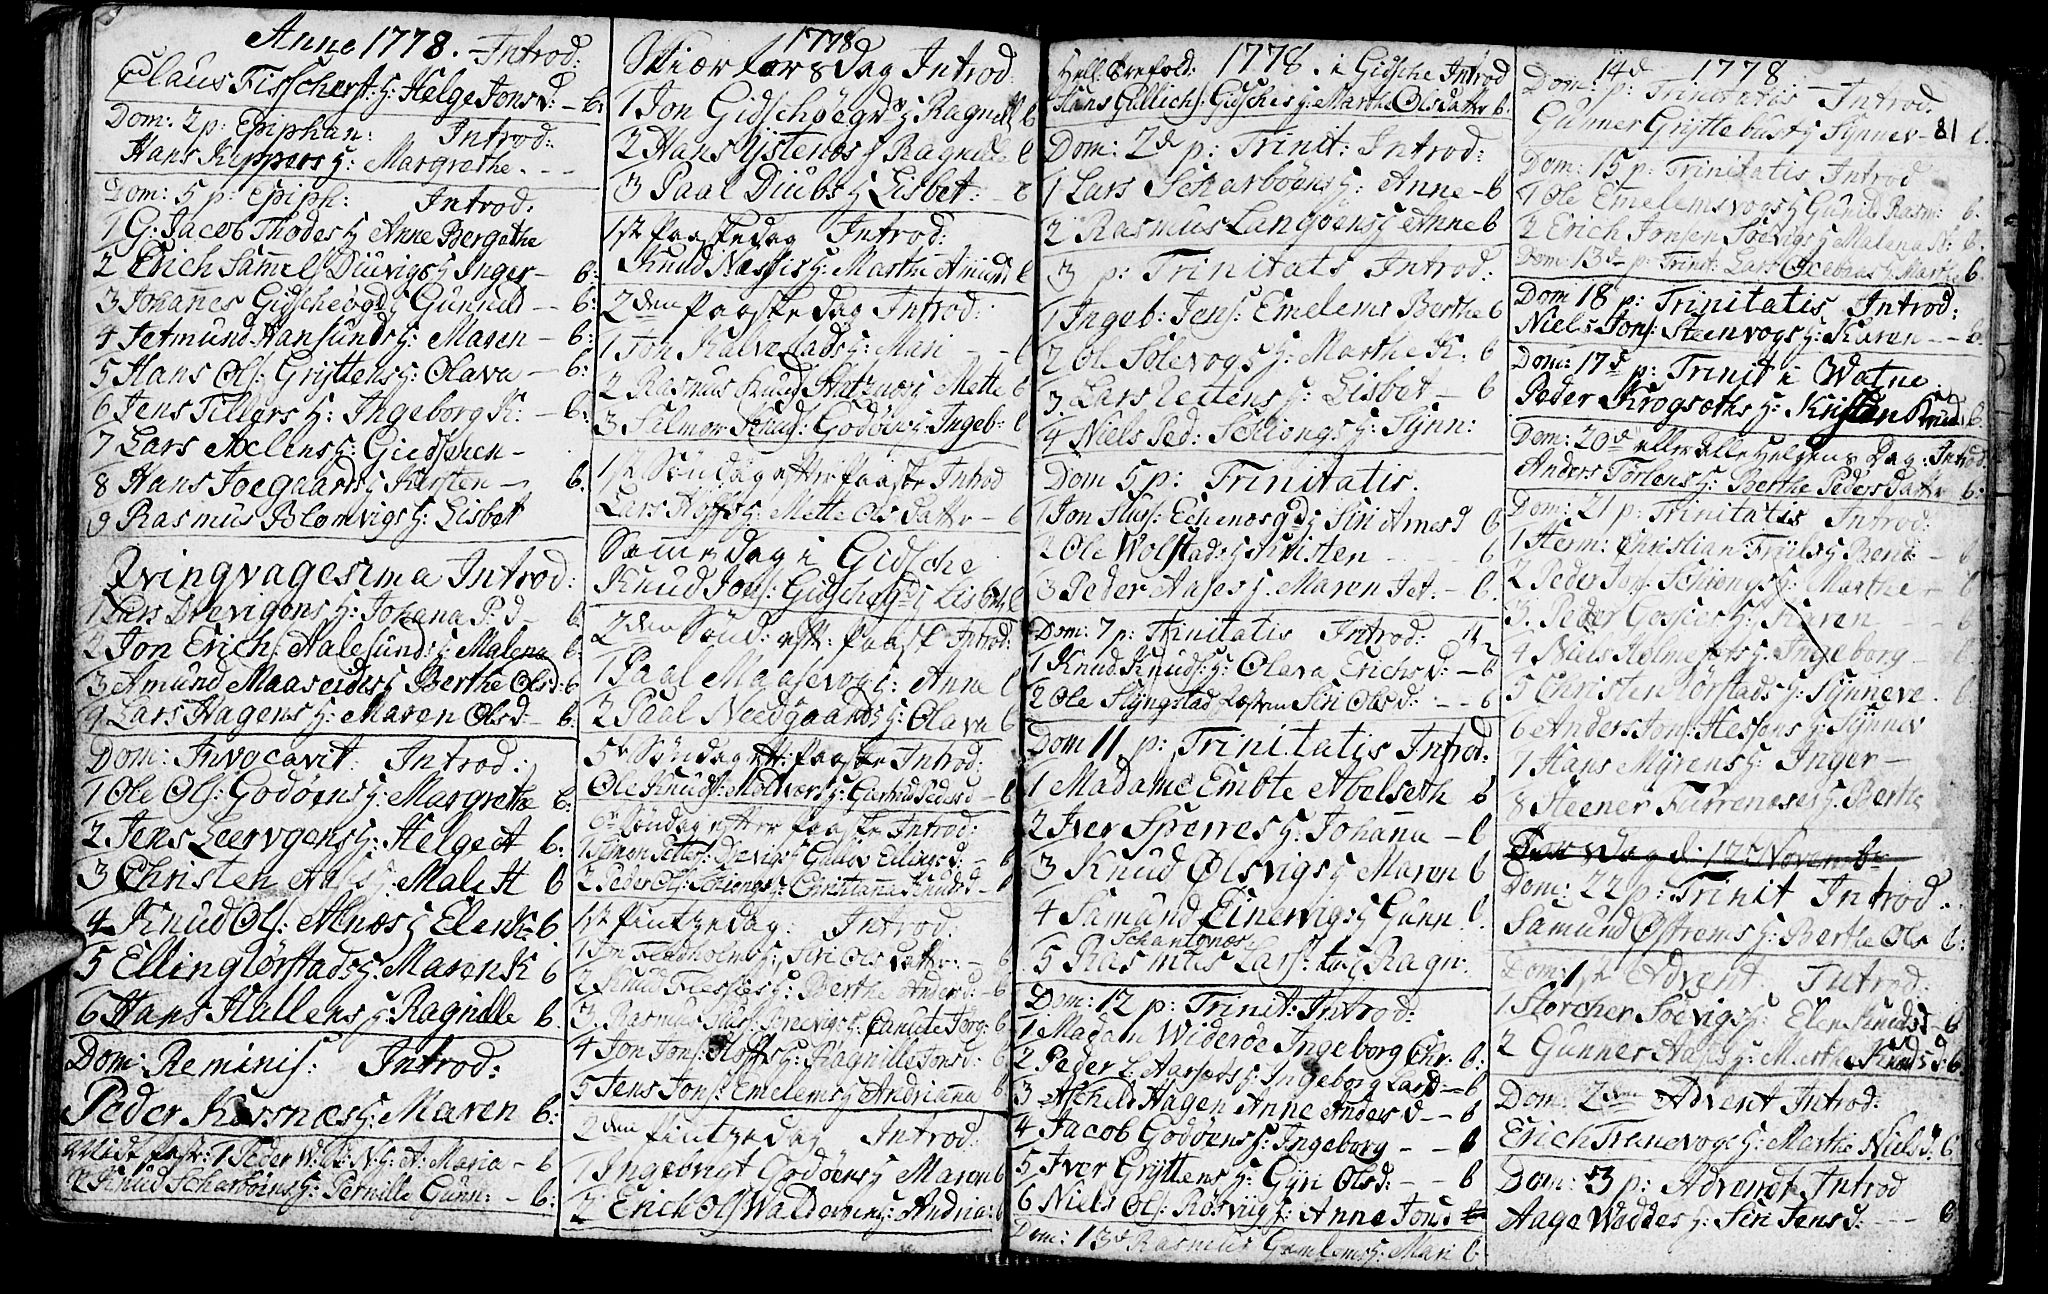 Anno 1778. Introd:
Claus Fisscherst: H: Helge Jonsd: - b:
Dom: 2 p: Epiphan: Introd:
Hans Kippers H: Margrethe. - -
Dom: 5 p: Epiph: Introd:
1 G: Jacob Thodes H Anne Bergethe
2 Erich Samuels Diuvigs H Inger - b:
3 Johannes Gidscheøgd H Gunnild - b:
4 Jetmund Hansunds H: Maren - b:
5 Hans Ols: Gryttens H: Olava - b:
6 Jens Tillers H: Ingeborg K: - b:
7 Lars Axlens H: Giedschen -
8 Hans Joegaards H Kirsten - b.
9 Rasmus Blomvigs H: Lisbet
Qvingvagesima Introd:
1 Lars Drevigens H: Johana P.d. b.
2 Jon Erichs: Aalesunds H: Malena b:
3 Amund Maaseides H Berthe Olsd: b
4 Lars Hagens H: Maren Olsd - b.
Dom: Invocavit Introd:
1 Ole Ols: Godøens H: Margrethe b:
2 Jens Leervgens H: Helge A b:
3 Christen H: Malet H b
4 Knud Ols: Alnæs H Elen K - b
5 Elling Lørstads H: Maren K b
6 Hans Hallens H: Ragnille b.
Dom: Reminis: Introd:
Peder Kursnæs H: Maren b:
Midf: fast: 1 Peder H: A: Maria - b
2 Knud Scharbøens H: Pernille Gunn: - b:
1778
Skiær torsdag Introd:
1 Jon Gidschøegd H Ragnill b
2 Hans Ystenæs H Ragnille b
3 Paal Diubs H Lisbet: - b
1st Paaskedag Introd:
Knud Næssis H: Marthe Amund b
2den Paaskedag Introd:
1 Jon Kalvestads H: Mari - - b
2 Rasmus Knud H Mette b
3 Selmor Knuds: Godøens H Ingeb: b
1st Søndag efter Paaske Introd
Lars Hoffs H: Mette Olsdattr - b
Samme dag i Gidsche
Knud Jons: Gidschegd H Lisbeth b
2den Sønd: eft: Paaske Introd:
1 Paal Maasevog H: Anne b
2 Paal Needgaards H: Olava b
5t Søndag eft: Paaske Introd:
Ole Knuds: Moldvers H: Giertrud Pedersd - b
6t Søndag efter Paaske Introd:
1 Simon H Ellingsd: - b
2 Peder Ols: Schiongs H: Christianna Knudsd - b
1st Pintzedag: Introd:
1 Jon H: Siri Olsdattr: - b
2 Knud Flesses H: Berthe Andersd: - b
3 Rasmus H: Canute Jørg: b
4 Jon Jons: Hoffs H: Ragnille Jonsd: b
5 Jens Jons: Emelems H: Andrianna b
2den Pintzedag Introd:
1 Ingebrigt Godøens H Maren b
2 Erich Ols Walderøens: Andria: b
1778. i Gidsche Introd
Hans Gullichs: Gidsches H: Marthe Olsdattr b.
Dom: 2d p: Trinit: Introd:
1 Lars Scharbøens H: Anne - b
2 Rasmus Langøens H Anne b
3 p: Trinitats Introd:
1 Ingeb: Jens: Emelems Berthe b
2 Ol Solevogs H: Marthe K. b
3. Lars Leitens H: Lisbet - b
4 Niels Ped: Schiongs H: Synn:
Dom 5 p: Trinitatis.
1 Jon Eckenæsgds Siri Arnesd b
2 Ole Wolstads H Kristen - - b
3 Peder Aases H. Maren Jet. - b.
Dom: 7 p: Trinitatis Introd:
1 Knud Knuds: H: Olava Erichsd: - b
2 Ole Slyngstad Siri Olsd: - - b
Dom 11 p: Trinitatis Introd:
1 Madame Embte Abelseth b
2 Iver Sperres H: Johanna - b
3 Knud Olsvigs H: Maren b
4 Samund Einevigs H Gunn b.
Schantenæs
5 Rasmus Lars: H Ragn:
Dom: 12 p: Trinit: Introd:
1 Madam Widerøe Ingeborg Chr: b:
2 Peder L: Aarseths H: Ingeborg Larsd: - b
3 Ascheld Hagen Anne Andersd - - b
4 Jacob Godøens H: Ingeborg - - b
5 Iver Gryttens H: Gyri Olsd: - - b
6 Niels Ols: Røsviigs: Anne Jonsd b
Dom: 13d Rasmus Gamlems H: Mari b.
14d 1778
Dom: p: Trinitatis Introd.
Gunner Gryttebust H Synnev - b.
81
Dom: 15 p: Trinitatis Introd
1 Ole Emelemsvogs H Gunild Rasm: b.
2 Erich Jonsen Soevigs H Malena N: b.
Dom: 13de p: Trinit: Lars H Marthe b.
Dom 18 p: Trinitatis Introd:
Niels Jons: Steenvogs H: Karen - - b.
Dom: 17d p: Trinit i Watne
Peder Krogsæths H: Kristen Knud b.
Dom: 20d eller Alle Helgens Dag: Introd
Anders Torlens H: Berthe Pedersdattr b:
Dom: 21 p: Trinitatis Introd:
1 Herm: Christian Friils H Rend - b
2 Peder Jons: Schiongs H: Marthe - b
3. Peder H: Karen - - b
4 Niels H: Ingeborg - b
5 Christen Lørstads H: Synneve. b
6 Anders Jons: Hessens H: Synnev
7 Hans Myrens H: Inger -
8 Steener Furrenæses H. Berthe
Dom: 22 p: Trinit Introd.
Samund Østrems H: Berthe Ols b:
Dom: 1st Advent Introd.
1 Storcher Soevigs H: Elen Knudsd - b
2 Gunner Aases H: Marthe Knudsd: b.
Dom: 2den Advent Introd:
Erich Tranevogs H: Marthe Nielsd: b
Dom: 3 p: Advendt Introd
Aage Waddes H: Siri Jensd: - - - b